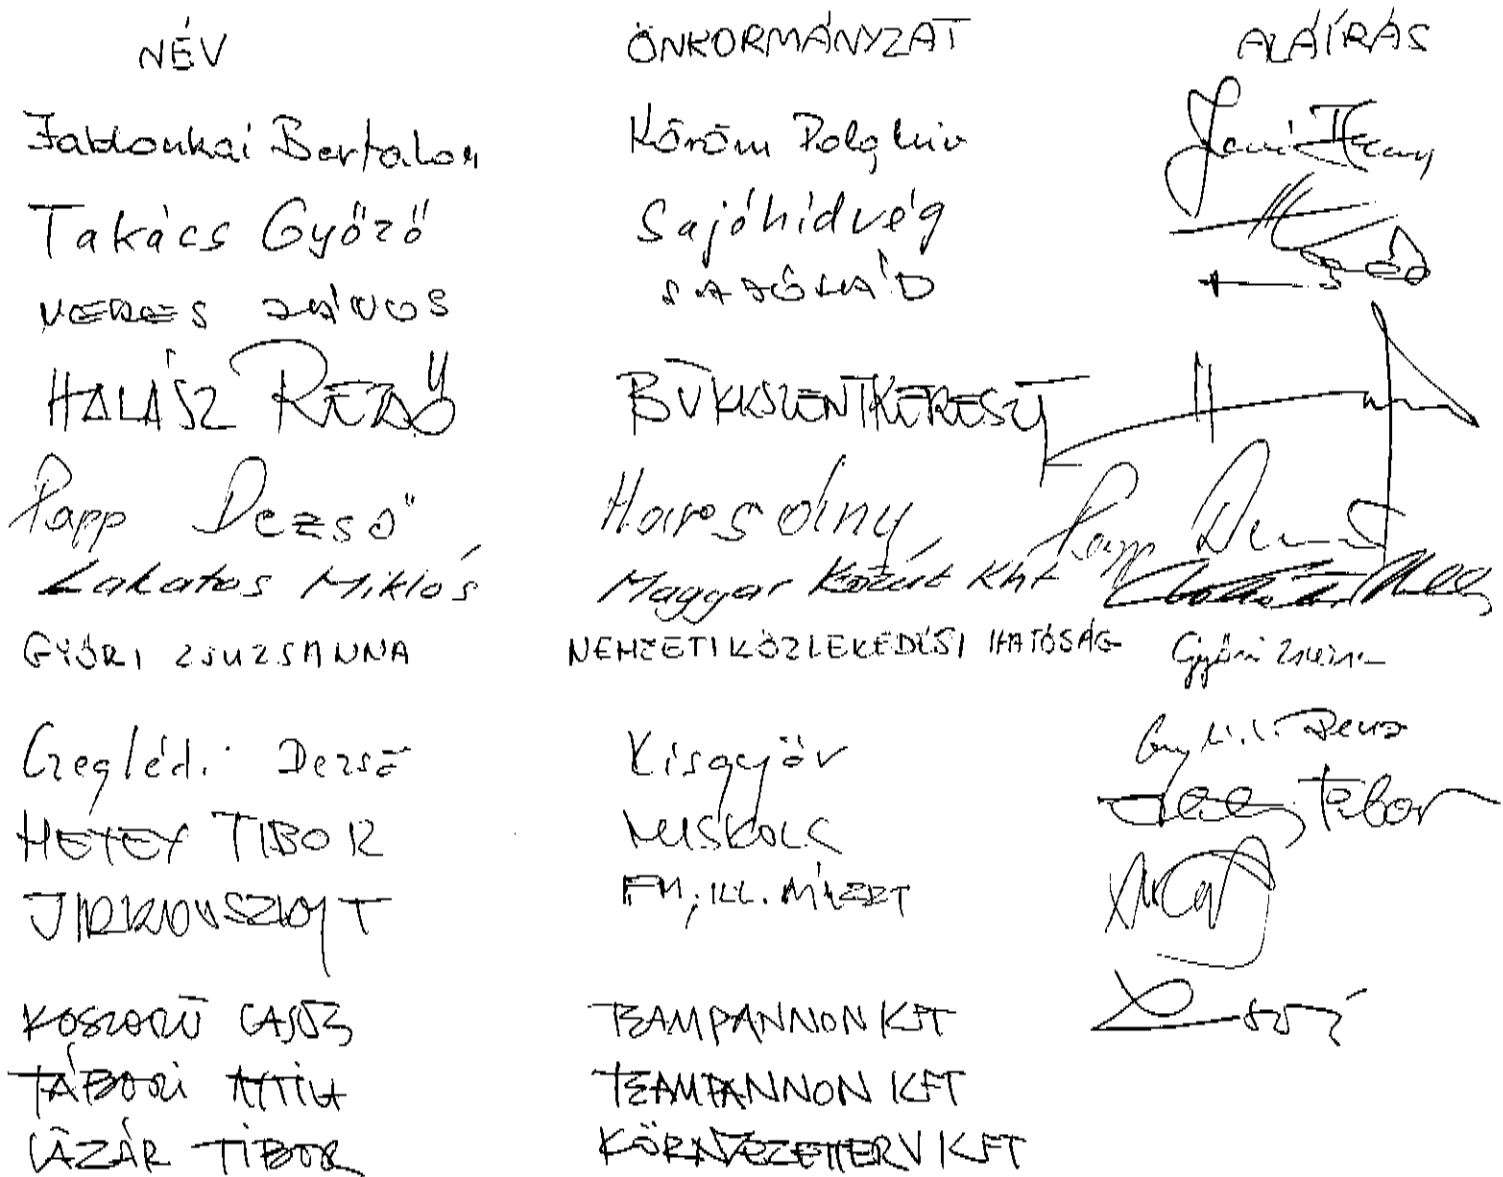 NÉV ÖNKORMÁNYZAT ALÁÍRÁS
Jablonkai Bertalan Köröm Polg hiv
Takács Győző Sajóhídvég
VERES JÁNOS SAJÓLÁD
HALÁSZ REZSŐ BÜKKSZENTKERESZT
Papp Dezső Harsány Papp
Lakatos Miklós Magyar Közút Kht
GYŐRI ZSUZSANNA NEMZETI KÖZLEKEDÉSI HATÓSÁG Győri
Czeglédi Dezső Kisgyőr
HETEY TIBOR MISKOLC Tibor
JIRKOVSZKY T FM, ILL.
KOSZORÚ LAJOS TEAMPANNON KFT
TÁBORI ATTILA TEAMPANNON KFT
LÁZÁR TIBOR KÖRNYEZETTERV KFT